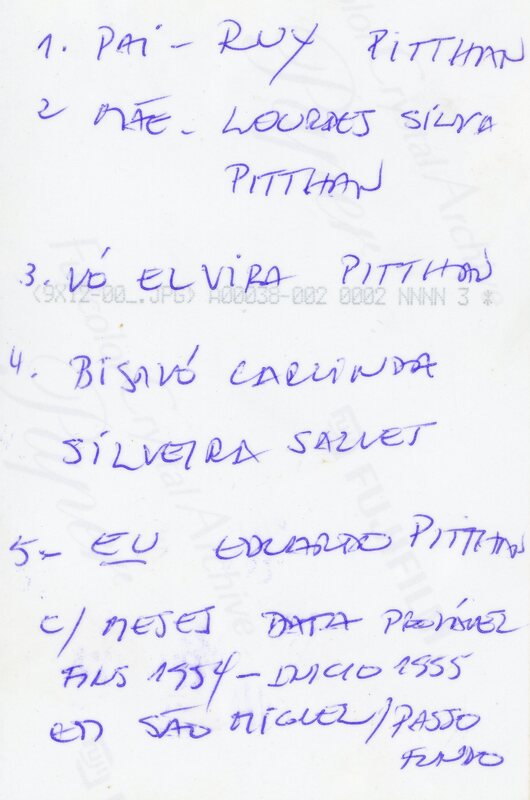 1. PAI - RUY PITTHAN
2 MÃE - LOURDES SILVA
PITTHAN
3. VÓ ELVIRA PITTHAN
(9X12-00_.JPG) A00038-002 0002 NNNN 3 *
4. BISAVÓ CARLINDA
SILVEIRA
5 - EU EDUARDO PITTHAN
C/ MESES DATA PROVÁVEL
FINS 1954 - INICIO 1955
EM SÃO MIGUEL / PASSO
FUNDO
Fujicolor Crystal Archive
Paper
FUJIFILM